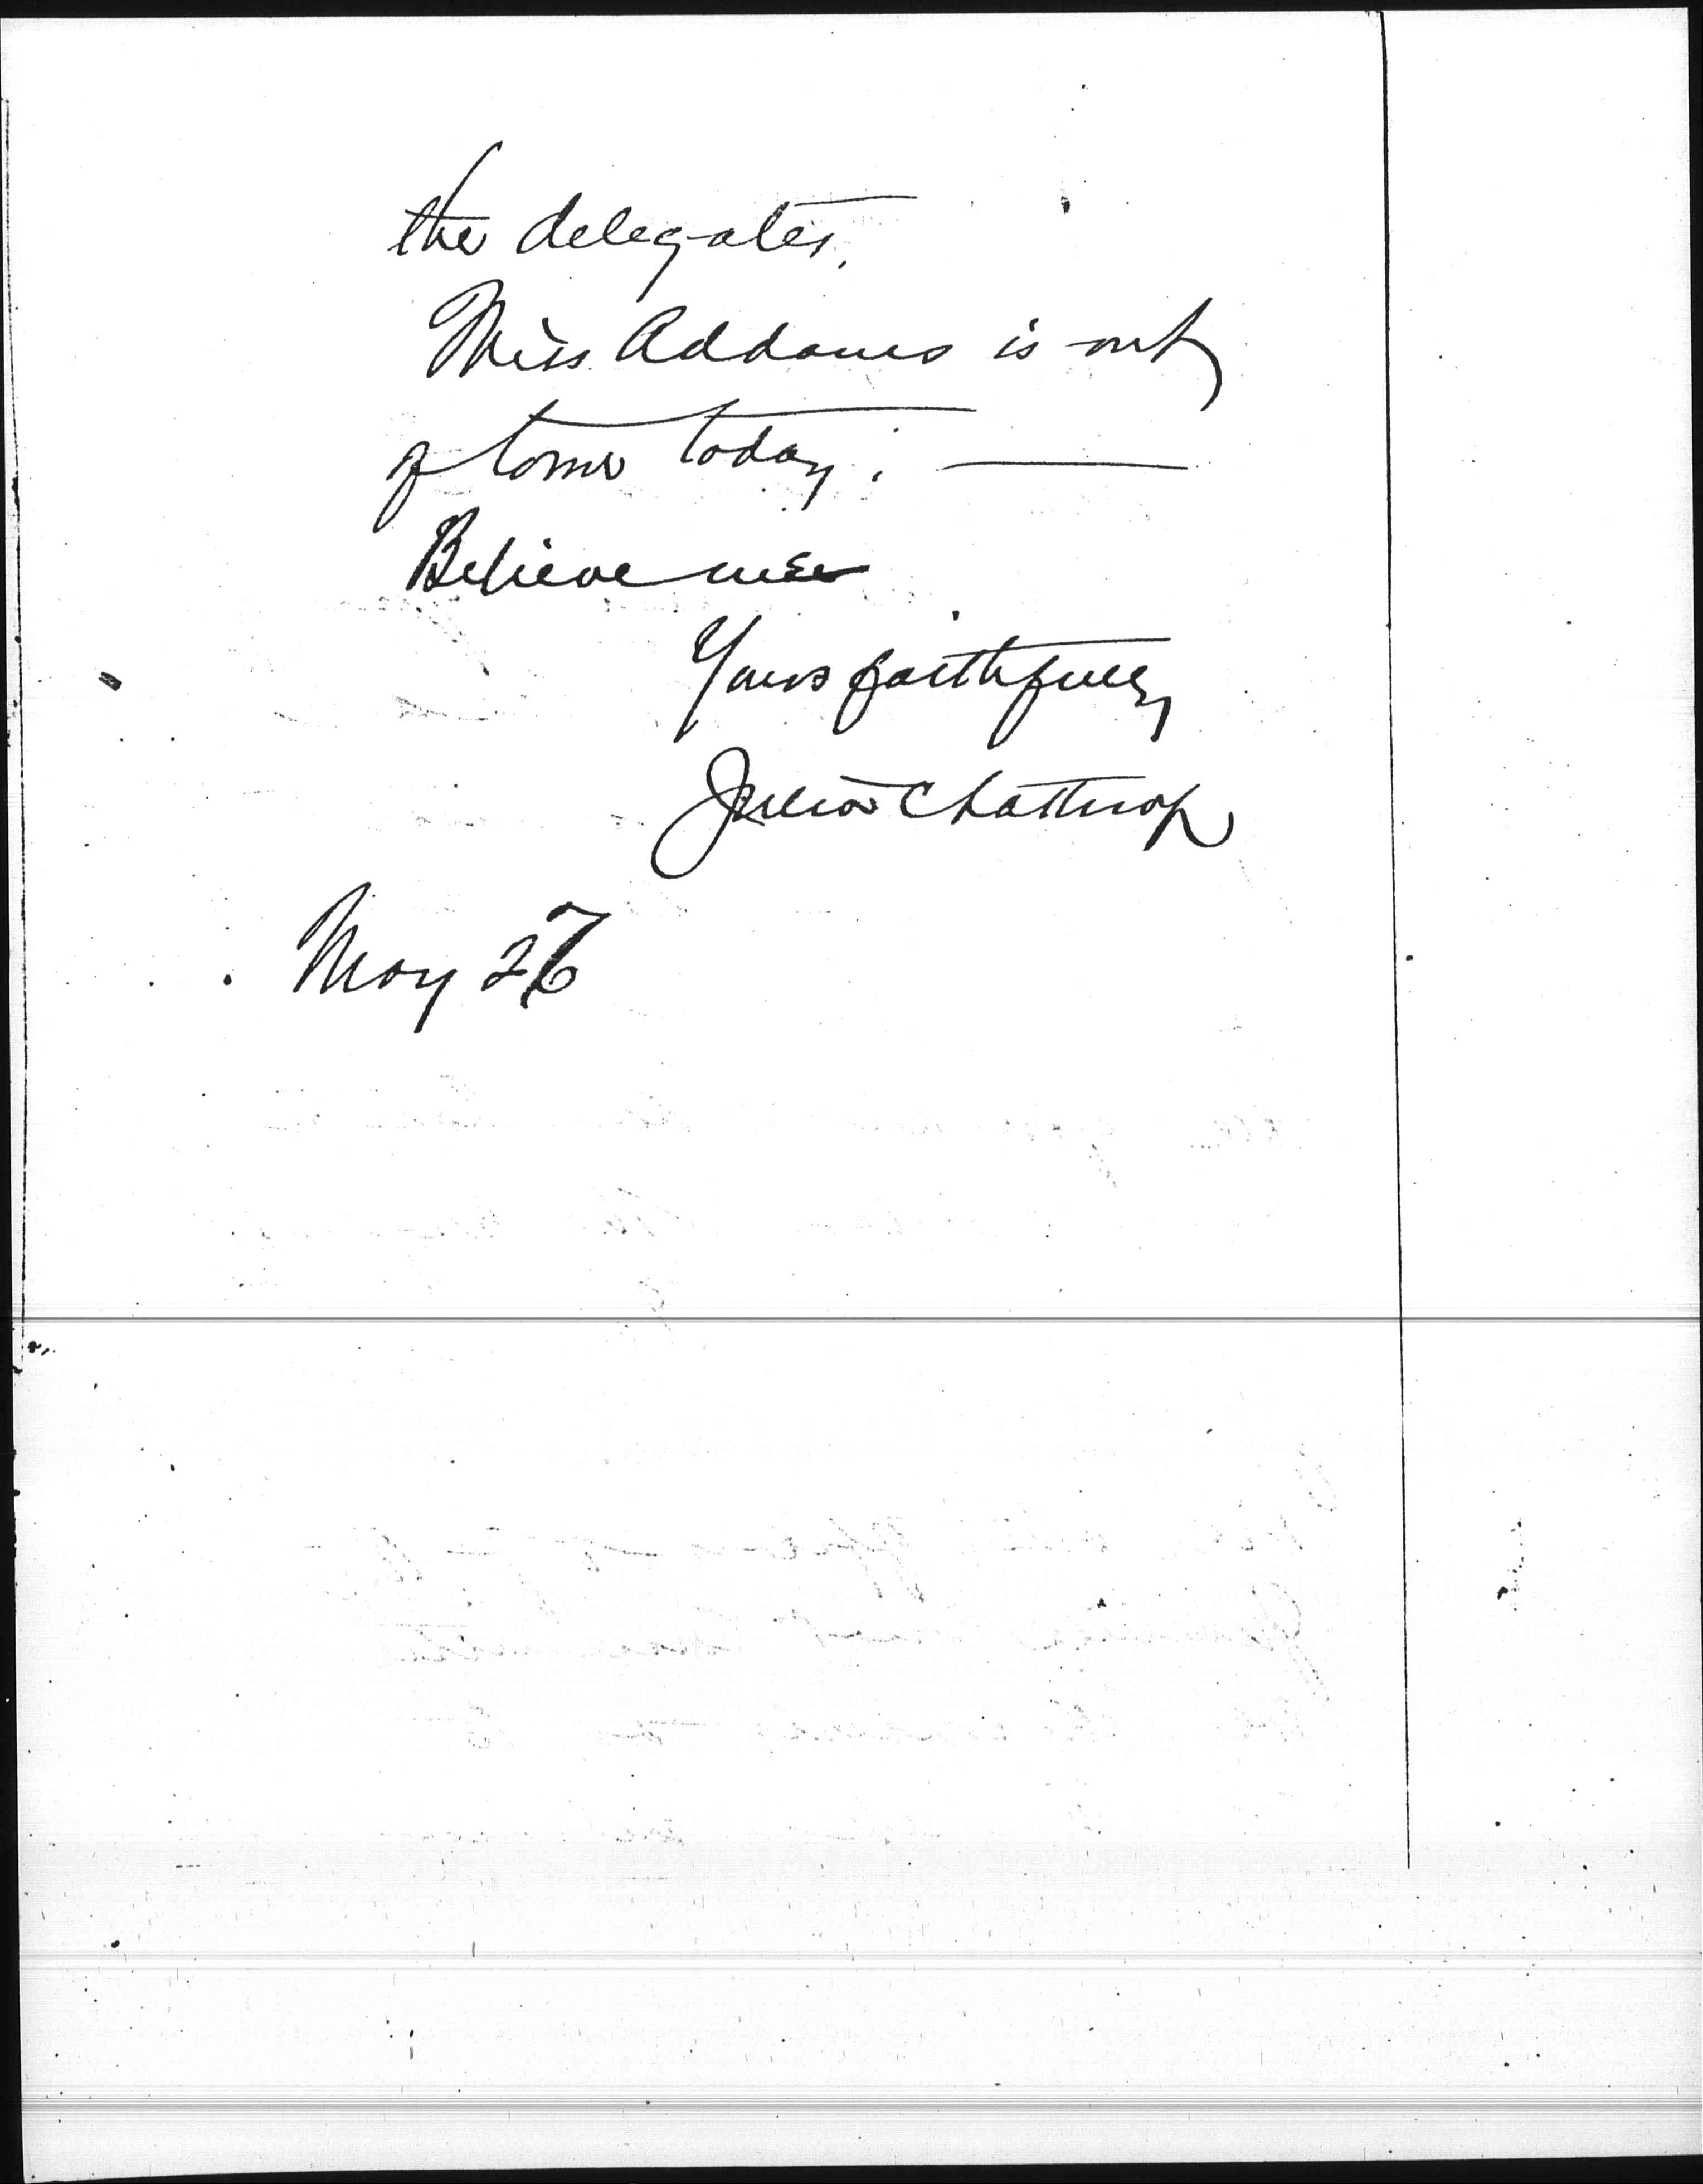 the delegates.
Miss Addams is out
of town today. —
Believe me
Yours faithfully
Julia C Lathrop
May 26